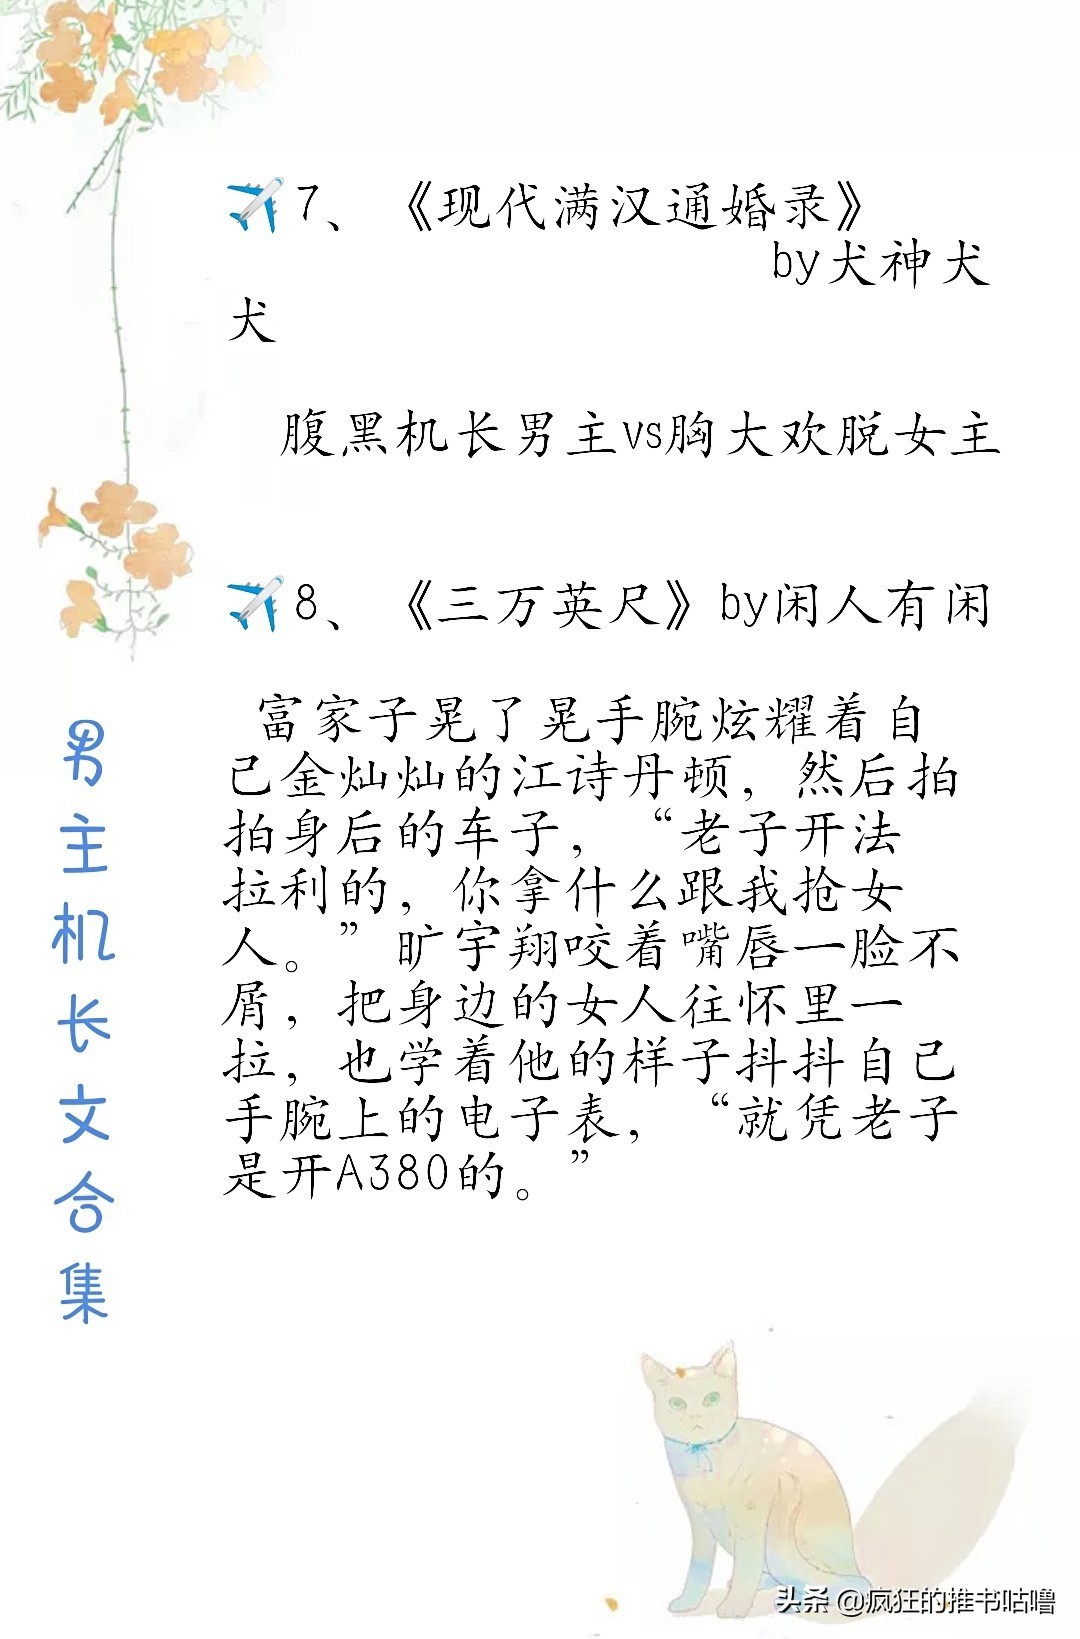 ✈️7、《现代满汉通婚录》
by犬神犬
犬
腹黑机长男主vs胸大欢脱女主
✈️8、《三万英尺》by闲人有闲
富家子晃了晃手腕炫耀着自
己金灿灿的江诗丹顿，然后拍
拍身后的车子，“老子开法
拉利的，你拿什么跟我抢女
人。”旷宇翔咬着嘴唇一脸不
屑，把身边的女人往怀里一
拉，也学着他的样子抖抖自己
手腕上的电子表，“就凭老子
是开A380的。”
男主机长文合集
头条 @疯狂的推书咕噜